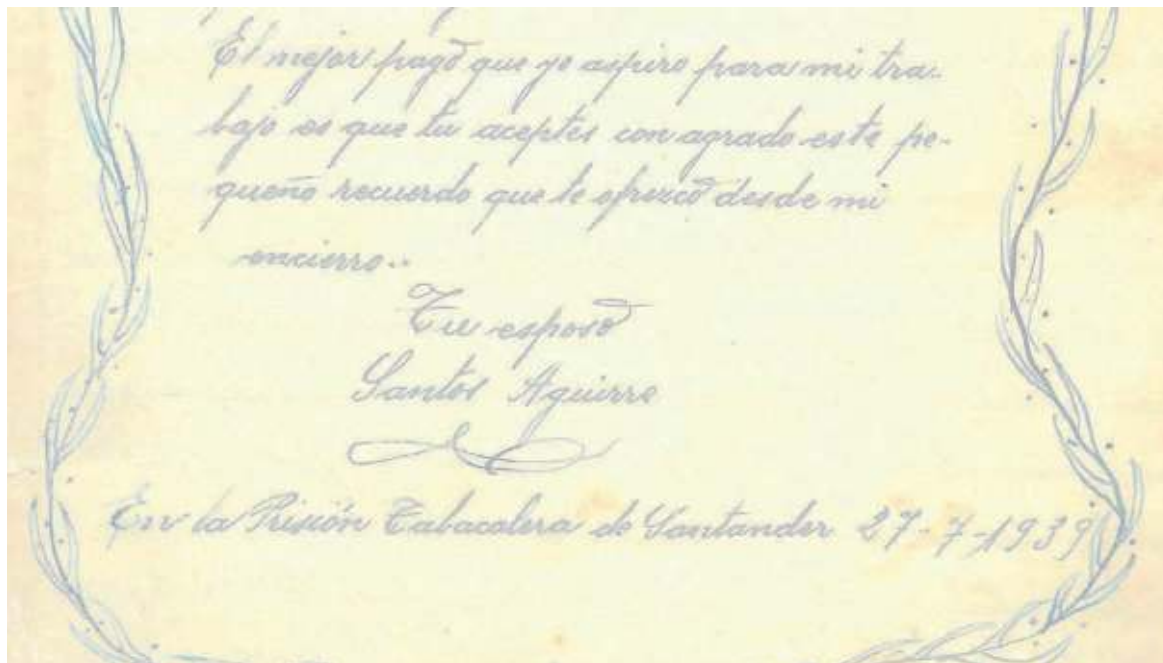 El mejor pago que yo aspiro para mi tra-
bajo es que tu aceptes con agrado este pe-
queño recuerdo que te ofrezco desde mi
encierro..
Tu esposo
Santos Aguirre
En la Prisión Tabacalera de Santander 27-7-1939